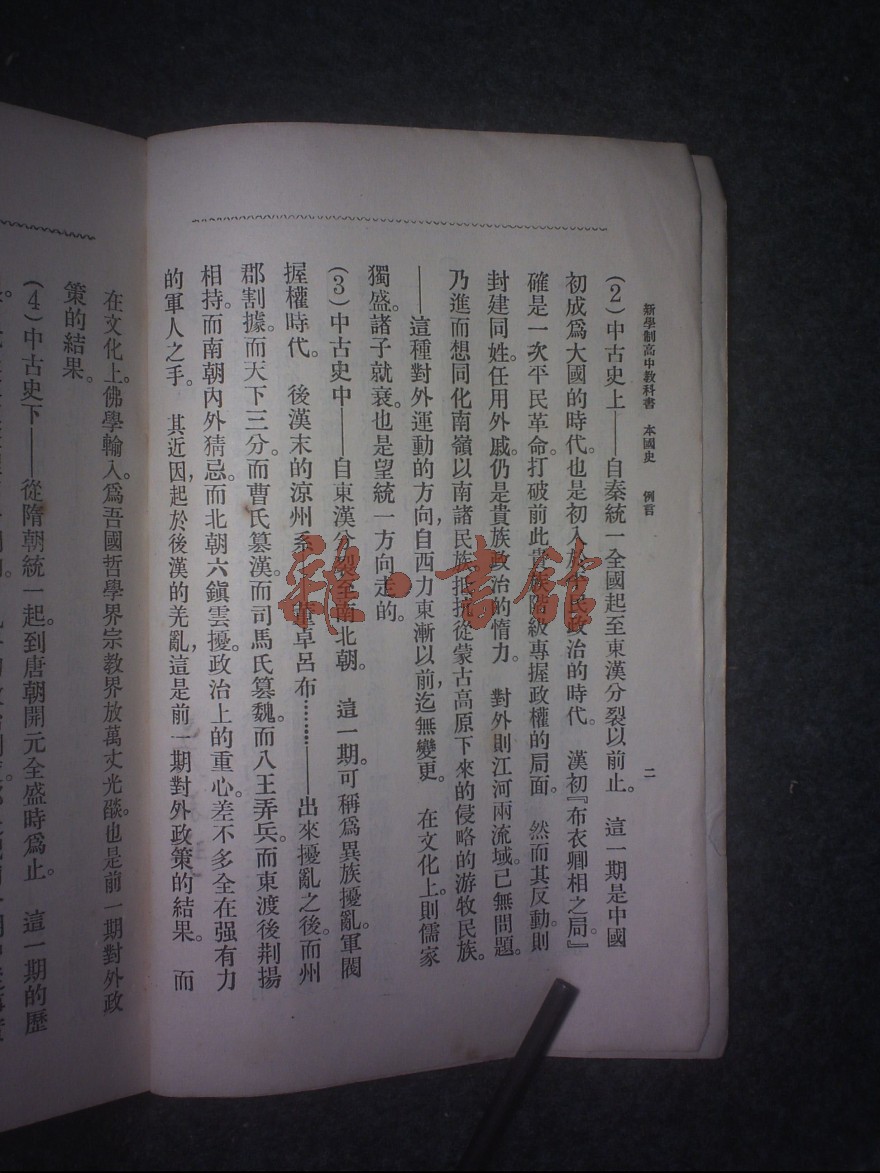 新學制高中教科書　本國史　例言　二
(2)中古史上——自秦統一全國起至東漢分裂以前止。　這一期是中國
初成爲大國的時代。也是初入於平民政治的時代。　漢初『布衣卿相之局。』
確是一次平民革命。打破前此貴族階級專握政權的局面。　然而其反動則
封建同姓。任用外戚。仍是貴族政治的惰力。　對外則江河兩流域。已無問題。
乃進而想同化南嶺以南諸民族。抵抗從蒙古高原下來的侵略的游牧民族。
——這種對外運動的方向，自西力東漸以前，迄無變更。　在文化上。則儒家
獨盛。諸子就衰。也是望統一方向走的。
(3)中古史中——自東漢分裂至南北朝。　這一期。可稱爲異族擾亂。軍閥
握權時代。　後漢末的涼州系——董卓呂布……——出來擾亂之後。而州
郡割據。而天下三分。而曹氏篡漢。而司馬氏篡魏。而八王弄兵。而東渡後荆揚
相持。而南朝內外猜忌。而北朝六鎮雲擾。政治上的重心。差不多全在强有力
的軍人之手。　其近因，起於後漢的羌亂，這是前一期對外政策的結果。　而
在文化上。佛學輸入。爲吾國哲學界宗教界放萬丈光燄。也是前一期對外政
策的結果。
(4)中古史下——從隋朝統一起。到唐朝開元全盛時爲止。　這一期的歷
雜·書館